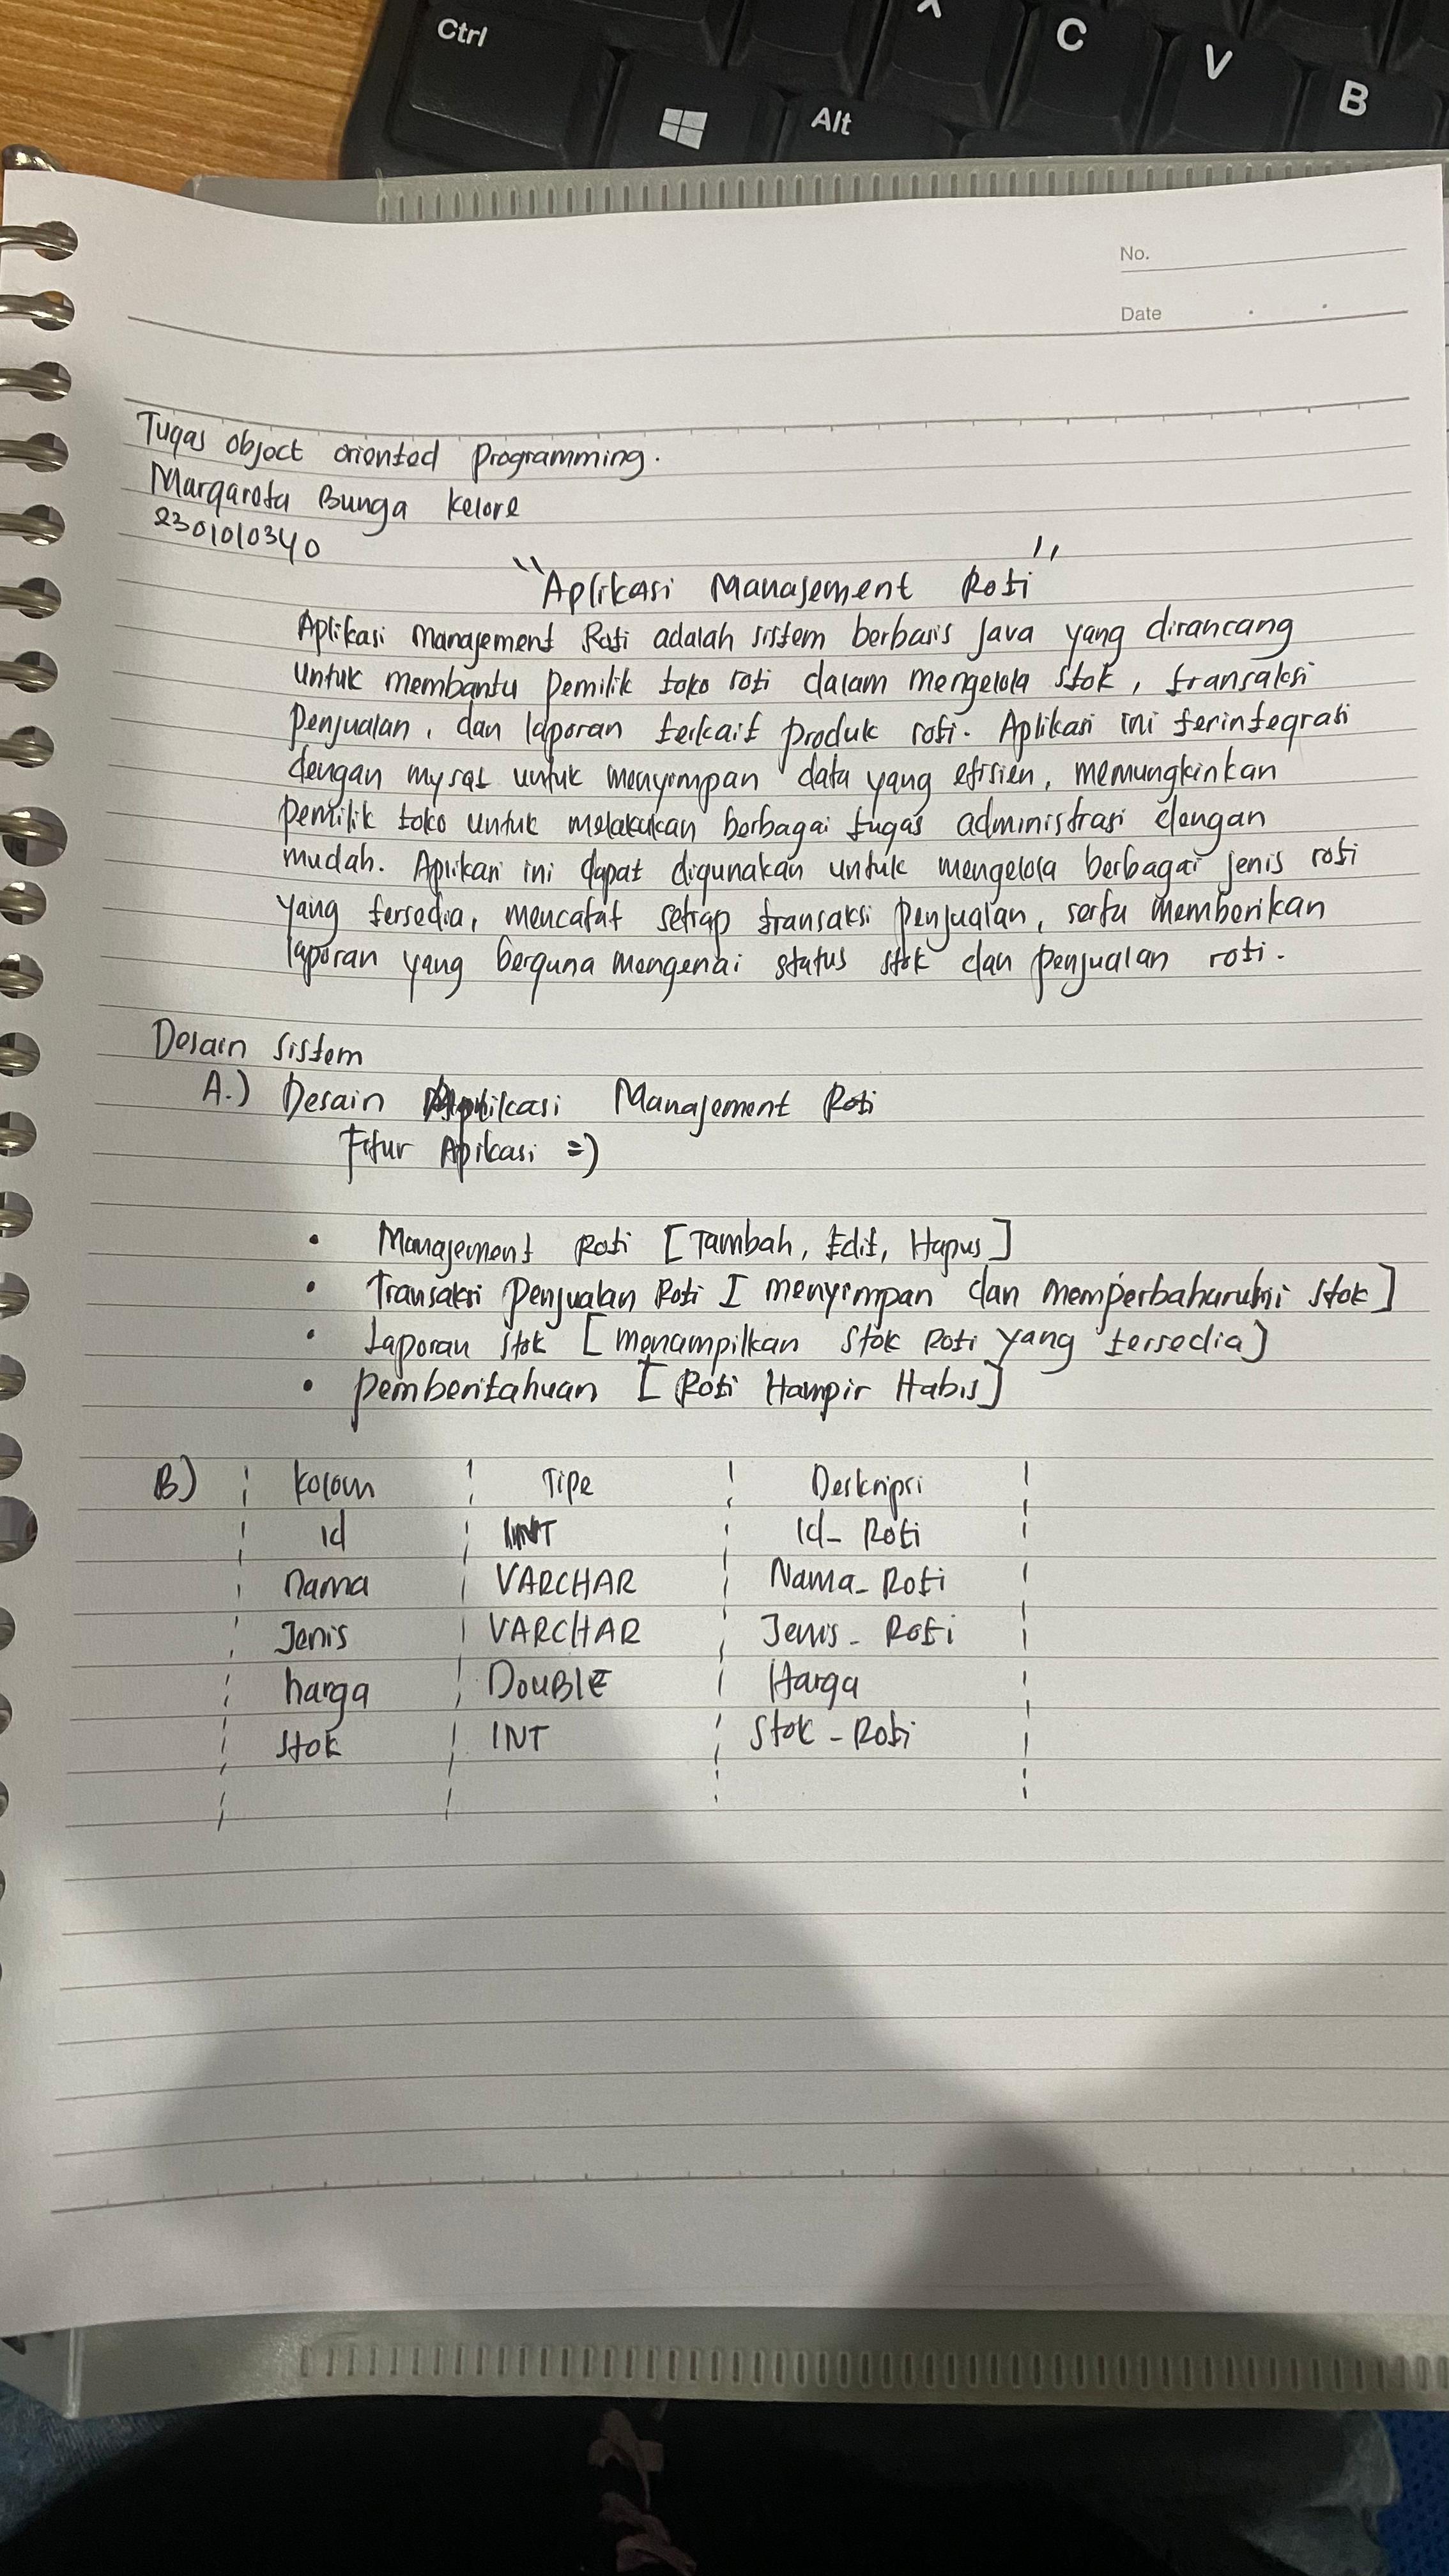 Ctrl
Alt
X
C
V
B
No.
Date
Tugas object oriented programming.
Margareta Bunga Kelore
2301010340
"Aplikasi Management Roti"
Aplikasi Management Roti adalah sistem berbasis java yang dirancang
untuk membantu pemilik toko roti dalam mengelola stok, transaksi
penjualan, dan laporan terkait produk roti. Aplikasi ini terintegrasi
dengan mysql untuk menyimpan data yang efisien, memungkinkan
pemilik toko untuk melakukan berbagai tugas administrasi dengan
mudah. Aplikasi ini dapat digunakan untuk mengelola berbagai jenis roti
yang tersedia, mencatat setiap transaksi penjualan, serta memberikan
laporan yang berguna mengenai status stok dan penjualan roti.
Desain Sistem
A.) Desain Aplikasi Management Roti
Fitur Aplikasi =)
• Management Roti [Tambah, Edit, Hapus]
• Transaksi Penjualan Roti [menyimpan dan stok]
• Laporan Stok [menampilkan Stok Roti yang tersedia]
• Pemberitahuan [Roti Hampir Habis]
B) Kolom Tipe Deskripsi
id INT Id_Roti
nama VARCHAR Nama_Roti
Jenis VARCHAR Jenis_Roti
harga DOUBLE Harga
Stok INT Stok_Roti